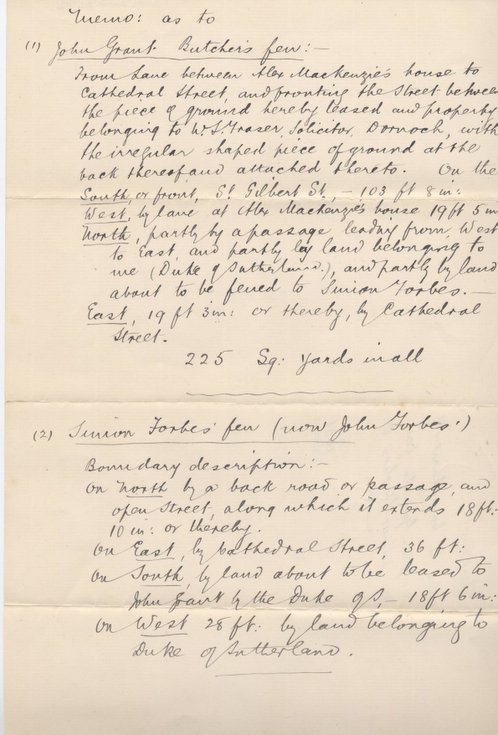 Memo: as to
(1) John Grant Butcher's feu:-
From Lane between Alex Mackenzie's house to
Cathedral Street, and fronting the Street between
the piece of ground hereby leased and property
belonging to W S Fraser, Solicitor, Dornoch, with
the irregular shaped piece of ground at the
back thereof and attached thereto. On the
South, or front, St. Gilbert St, - 103 ft 8 in:
West, by lane at Alex Mackenzie's house 19 ft 5 in
North, partly by a passage leading from West
to East, and partly by land belonging to
me (Duke of Sutherland), and partly by land
about to be feued to Sinion Forbes. -
East, 19 ft 3 in: or thereby, by Cathedral
Street.
225 Sq: yards in all
(2) Sinion Forbes' feu (now John Forbes')
Boundary description:-
On North by a back road or passage, and
open Street, along which it extends 18 ft:
10 in: or thereby.
On East, by Cathedral Street, 36 ft:
On South, by land about to be leased to
John Grant by the Duke of S, - 18 ft 6 in:
On West 28 ft: by land belonging to
Duke of Sutherland.